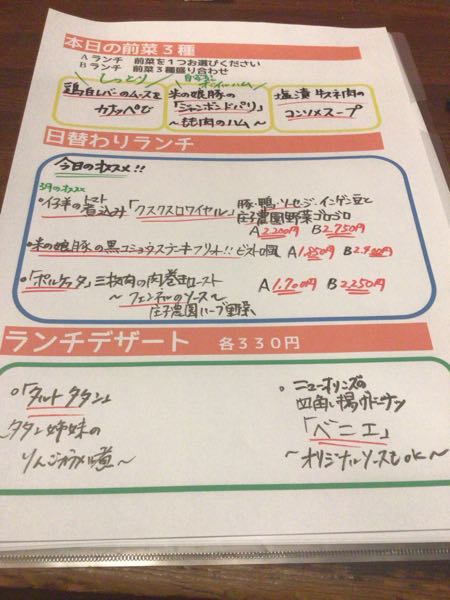 本日の前菜3種
Aランチ 前菜を1つお選びください
Bランチ 前菜3種盛り合わせ
しっとり
鶏白レバーのムースを
カナッペで
自家製
ボイルハム
米の娘豚の
「ジャンボンドパリ」
〜純肉のハム〜
塩漬牛スネ肉の
コンソメスープ
日替わりランチ
今日のオススメ!!
3月のオススメ
・仔羊のトマト煮込み「クスクスロワイヤル」
豚・鴨・ソーセージ・インゲン豆と
庄子農園野菜ゴロゴロ
A 2,200円 B 2,750円
・米の娘豚の黒コショウステーキフリット!! ビストロ風
A 1,850円 B 2,400円
・「ポルケッタ」三枚肉の肉巻きロースト
〜フェンネルのソース〜
庄子農園ハーブ野菜
A 1,700円 B 2,250円
ランチデザート 各330円
・「タルトタタン」
タタン姉妹の
りんごカラメル煮〜
・ニューオリンズの
四角い揚げドーナツ
「ベニエ」
〜オリジナルソースもok〜